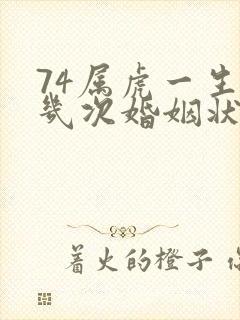 74属虎一生
几次婚姻状
着火的橙子